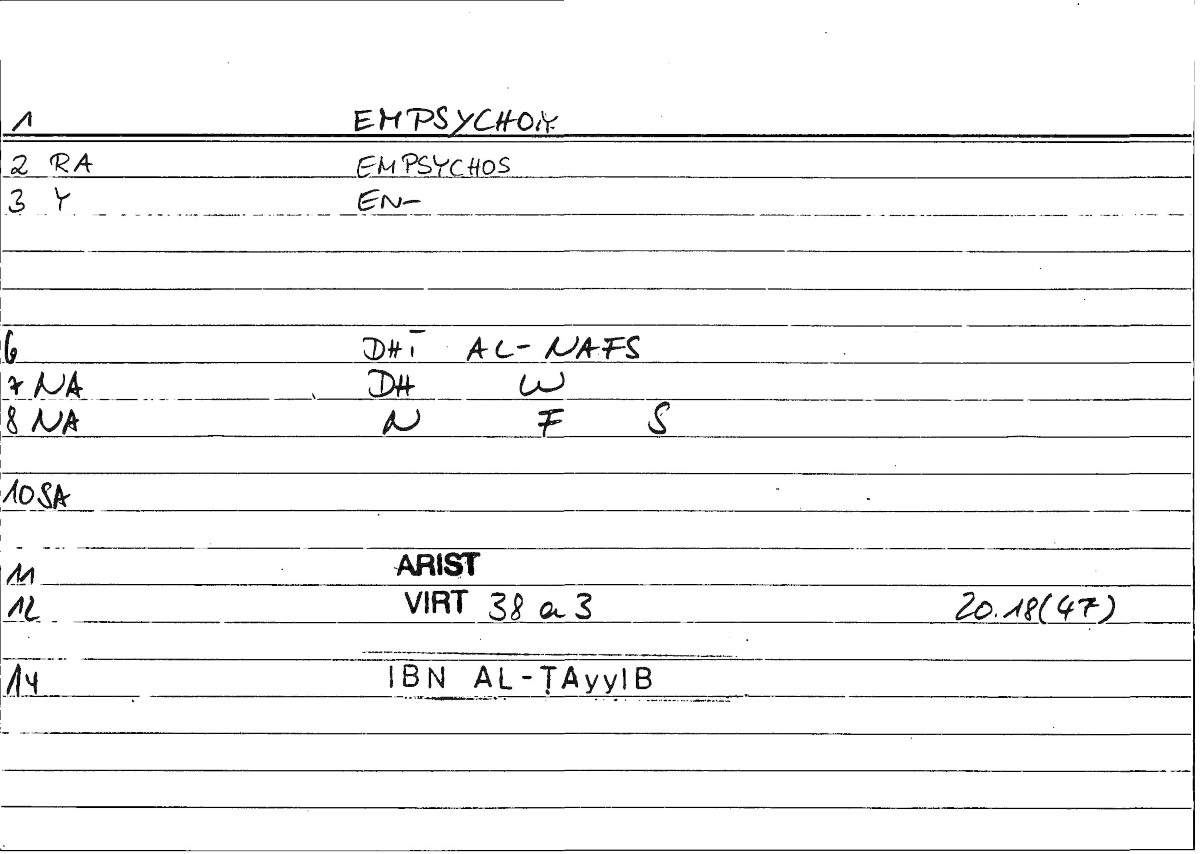 1 EMPSYCHOIN
2 RA EMPSYCHOS
3 Y EN-
6 DHĪ AL-NAFS
7 NA DH W
8 NA N F S
10 SA
11 ARIST
12 VIRT 38 a 3 20.18(47)
14 IBN AL-ṬAyyIB